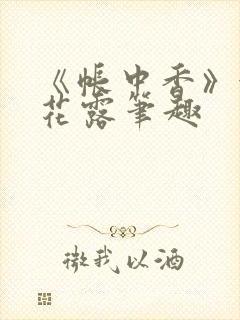 《帐中香》
花露笔趣
微我以酒